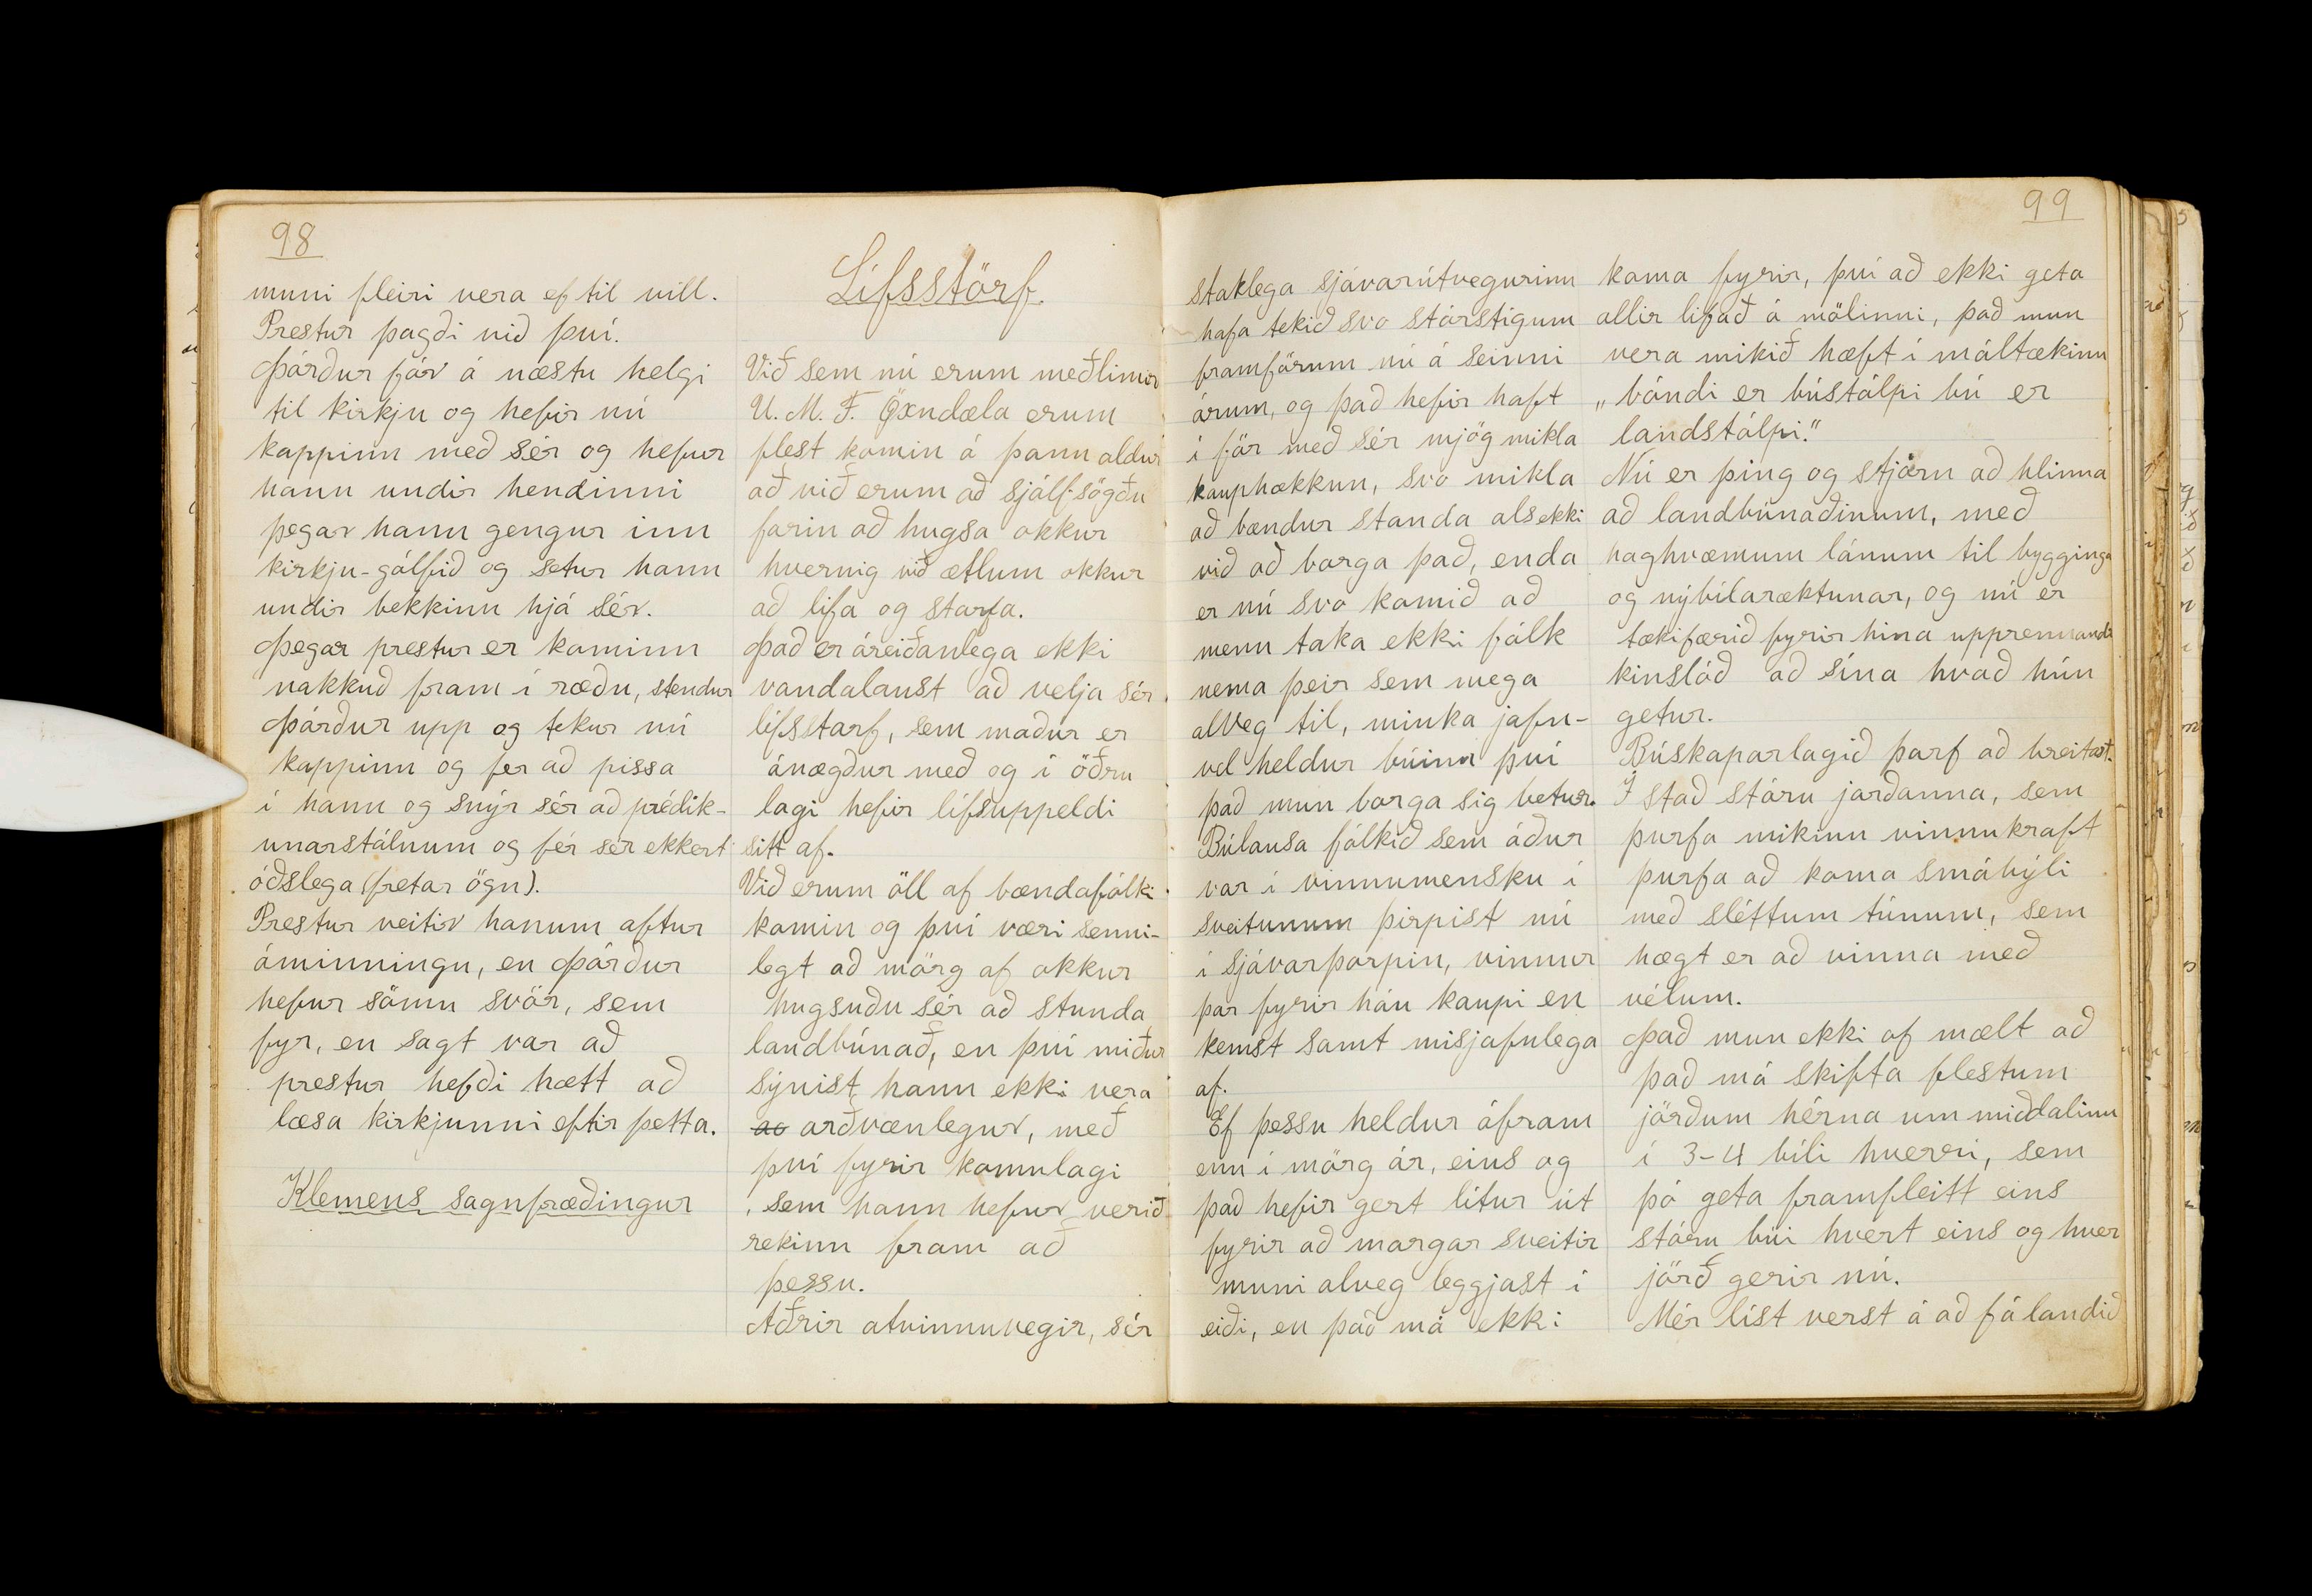 98
muni fleiri vera ef til vill.
Prestur þagði við því.
Þórður fór á næstu helgi
til kirkju og hefir nú
koppinn með sér og hefur
hann undir hendinni
þegar hann gengur inn
kirkju-gólfið og setur hann
undir bekkinn hjá sér.
Þegar prestur er kominn
nokkuð fram í ræðu, stendur
Þórður upp og tekur nú
koppinn og fer að pissa
í hann og snýr sér að prédik-
unarstólnum og fer sér ekkert
óðslega (fretar ögn).
Prestur veitir honum aftur
áminningu, en Þórður
hefur sömu svör, sem
fyr, en sagt var að
prestur hefði hætt að
læsa kirkjunni eftir þetta.
Klemens sagnfræðingur
Lífsstörf.
Við sem nú erum meðlimir
U. M. F. Öxndæla erum
flest komin á þann aldur
að við erum að sjálf-sögðu
farin að hugsa okkur
hvernig við ætlum okkur
að lifa og starfa.
Það er áreiðanlega ekki
vandalaust að velja sér
lífsstarf, sem maður er
ánægður með og í öðru
lagi hefir lífsuppeldi
sitt af.
Við erum öll af bændafólki
komin og því væri senni-
legt að mörg af okkur
hugsuðu sér að stunda
landbúnað, en því miður
sýnist hann ekki vera
ao arðvænlegur, með
því fyrir komulagi
sem hann hefur verið
rekinn fram að
þessu.
Aðrir atvinnuvegir, sér
99
staklega sjávarútvegurinn
hafa tekið svo stórstigum
framförum nú á seinni
árum, og það hefir haft
í för með sér mjög mikla
kauphækkun, svo mikla
að bændur standa als ekki
við að borga það, enda
er nú svo komið að
menn taka ekki fólk
nema þeir sem mega
alveg til, minka jafn-
vel heldur búinn því
það mun borga sig betur.
Búlausa fólkið sem áður
var í vinnumensku í
sveitunum þirpist nú
í sjávarþorpin, vinnur
þar fyrir háu kaupi en
kemst samt misjafnlega
af.
Ef þessu heldur áfram
enn í mörg ár, eins og
það hefir gert lítur út
fyrir að margar sveitir
muni alveg leggjast í
eiði, en það má ekki
koma fyrir, því að ekki geta
allir lifað á mölinni, það mun
vera mikið hæft í máltækinu
„bóndi er bústólpi bú er
landstólpi."
Nú er þing og stjórn að hlinna
að landbúnaðinum, með
haghvæmum lánum til bygginga
og nýbílaræktunar, og nú er
tækifærið fyrir hina upprennandi
kinslóð að sína hvað hún
getur.
Búskaparlagið þarf að breitast.
Í stað stóru jarðanna, sem
þurfa mikinn vinnukraft
þurfa að koma smábýli
með sléttum túnum, sem
hægt er að vinna með
vélum.
Það mun ekki of mælt að
það má skifta flestum
jörðum hérna um miðdalinn
í 3-4 bíli hverri, sem
þó geta framfleitt eins
stóru búi hvert eins og hver
jörð gerir nú.
Mér líst verst á að fá landið